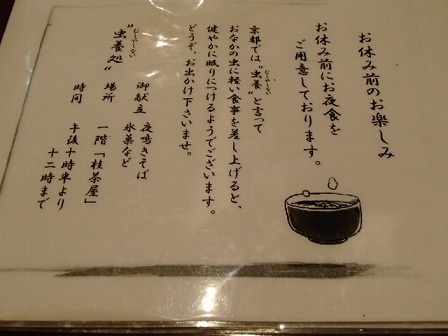 お休み前のお楽しみ
お休み前にお夜食を
ご用意しております。
京都では“虫養”と言って
むしやしない
おなかの虫に軽い食事を差し上げると、
健やかに眠りにつけるようでございます。
どうぞ、お出かけ下さいませ。
“虫養処”
むしやしない
御献立 夜鳴きそば
氷菓など
場所 一階「桂茶屋」
時間 午後十時半より
十二時まで